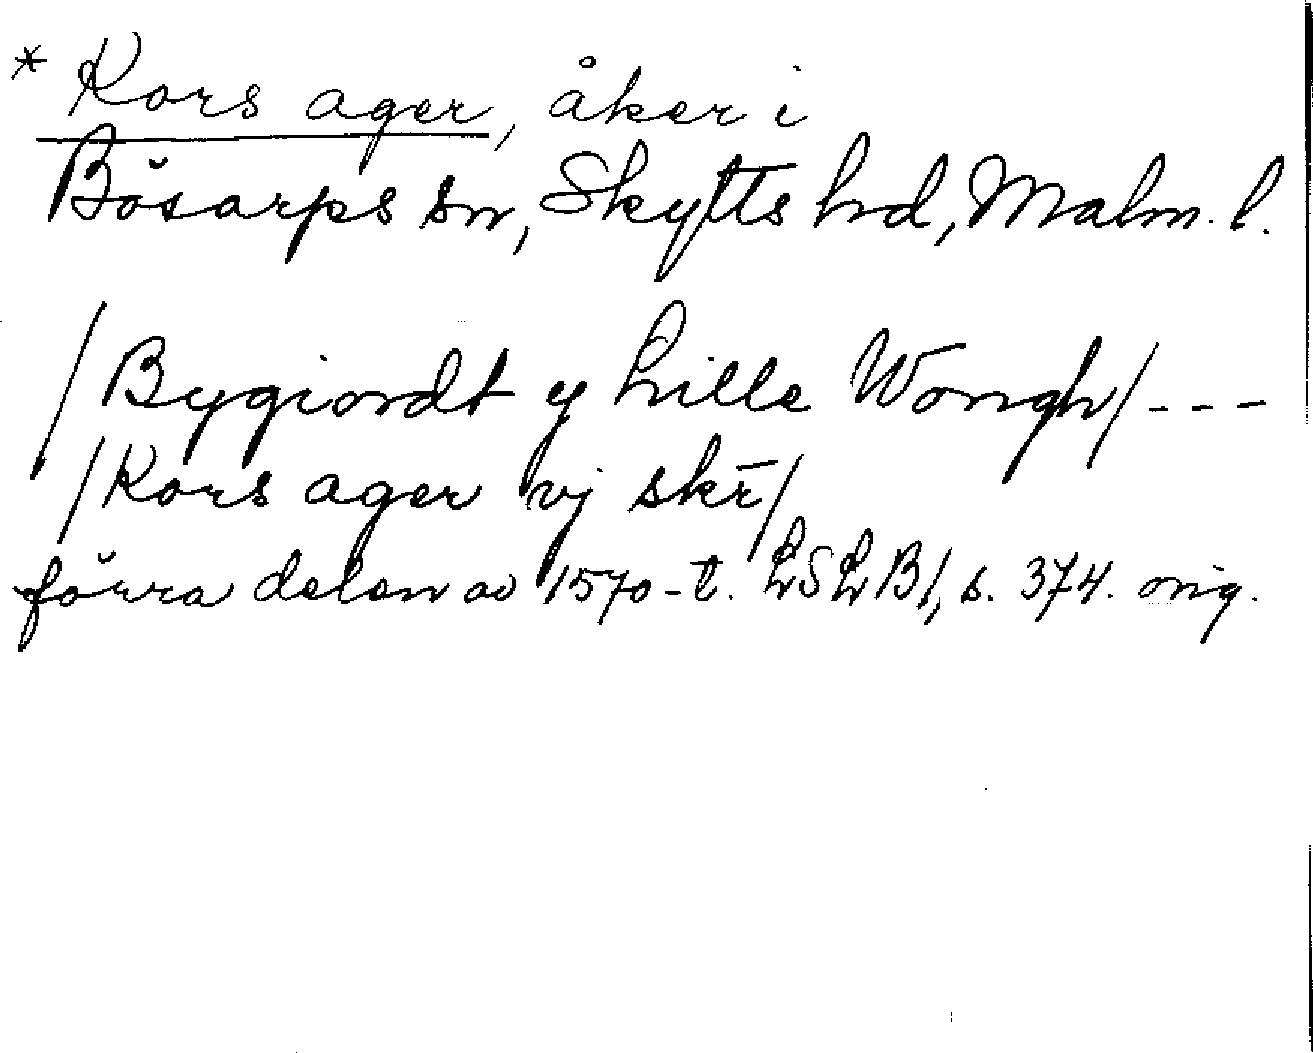 * Kors ager, åker i
Bösarps sn, Skytts hd, Malm. l.
/Bygiordt y Lille Wongh/ ---
/Kors ager vj skr̄/
förra delen av 1570-t. LSLB1, s. 374. orig.